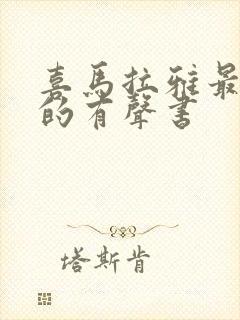 喜馬拉雅最
的有聲書
塔斯肯